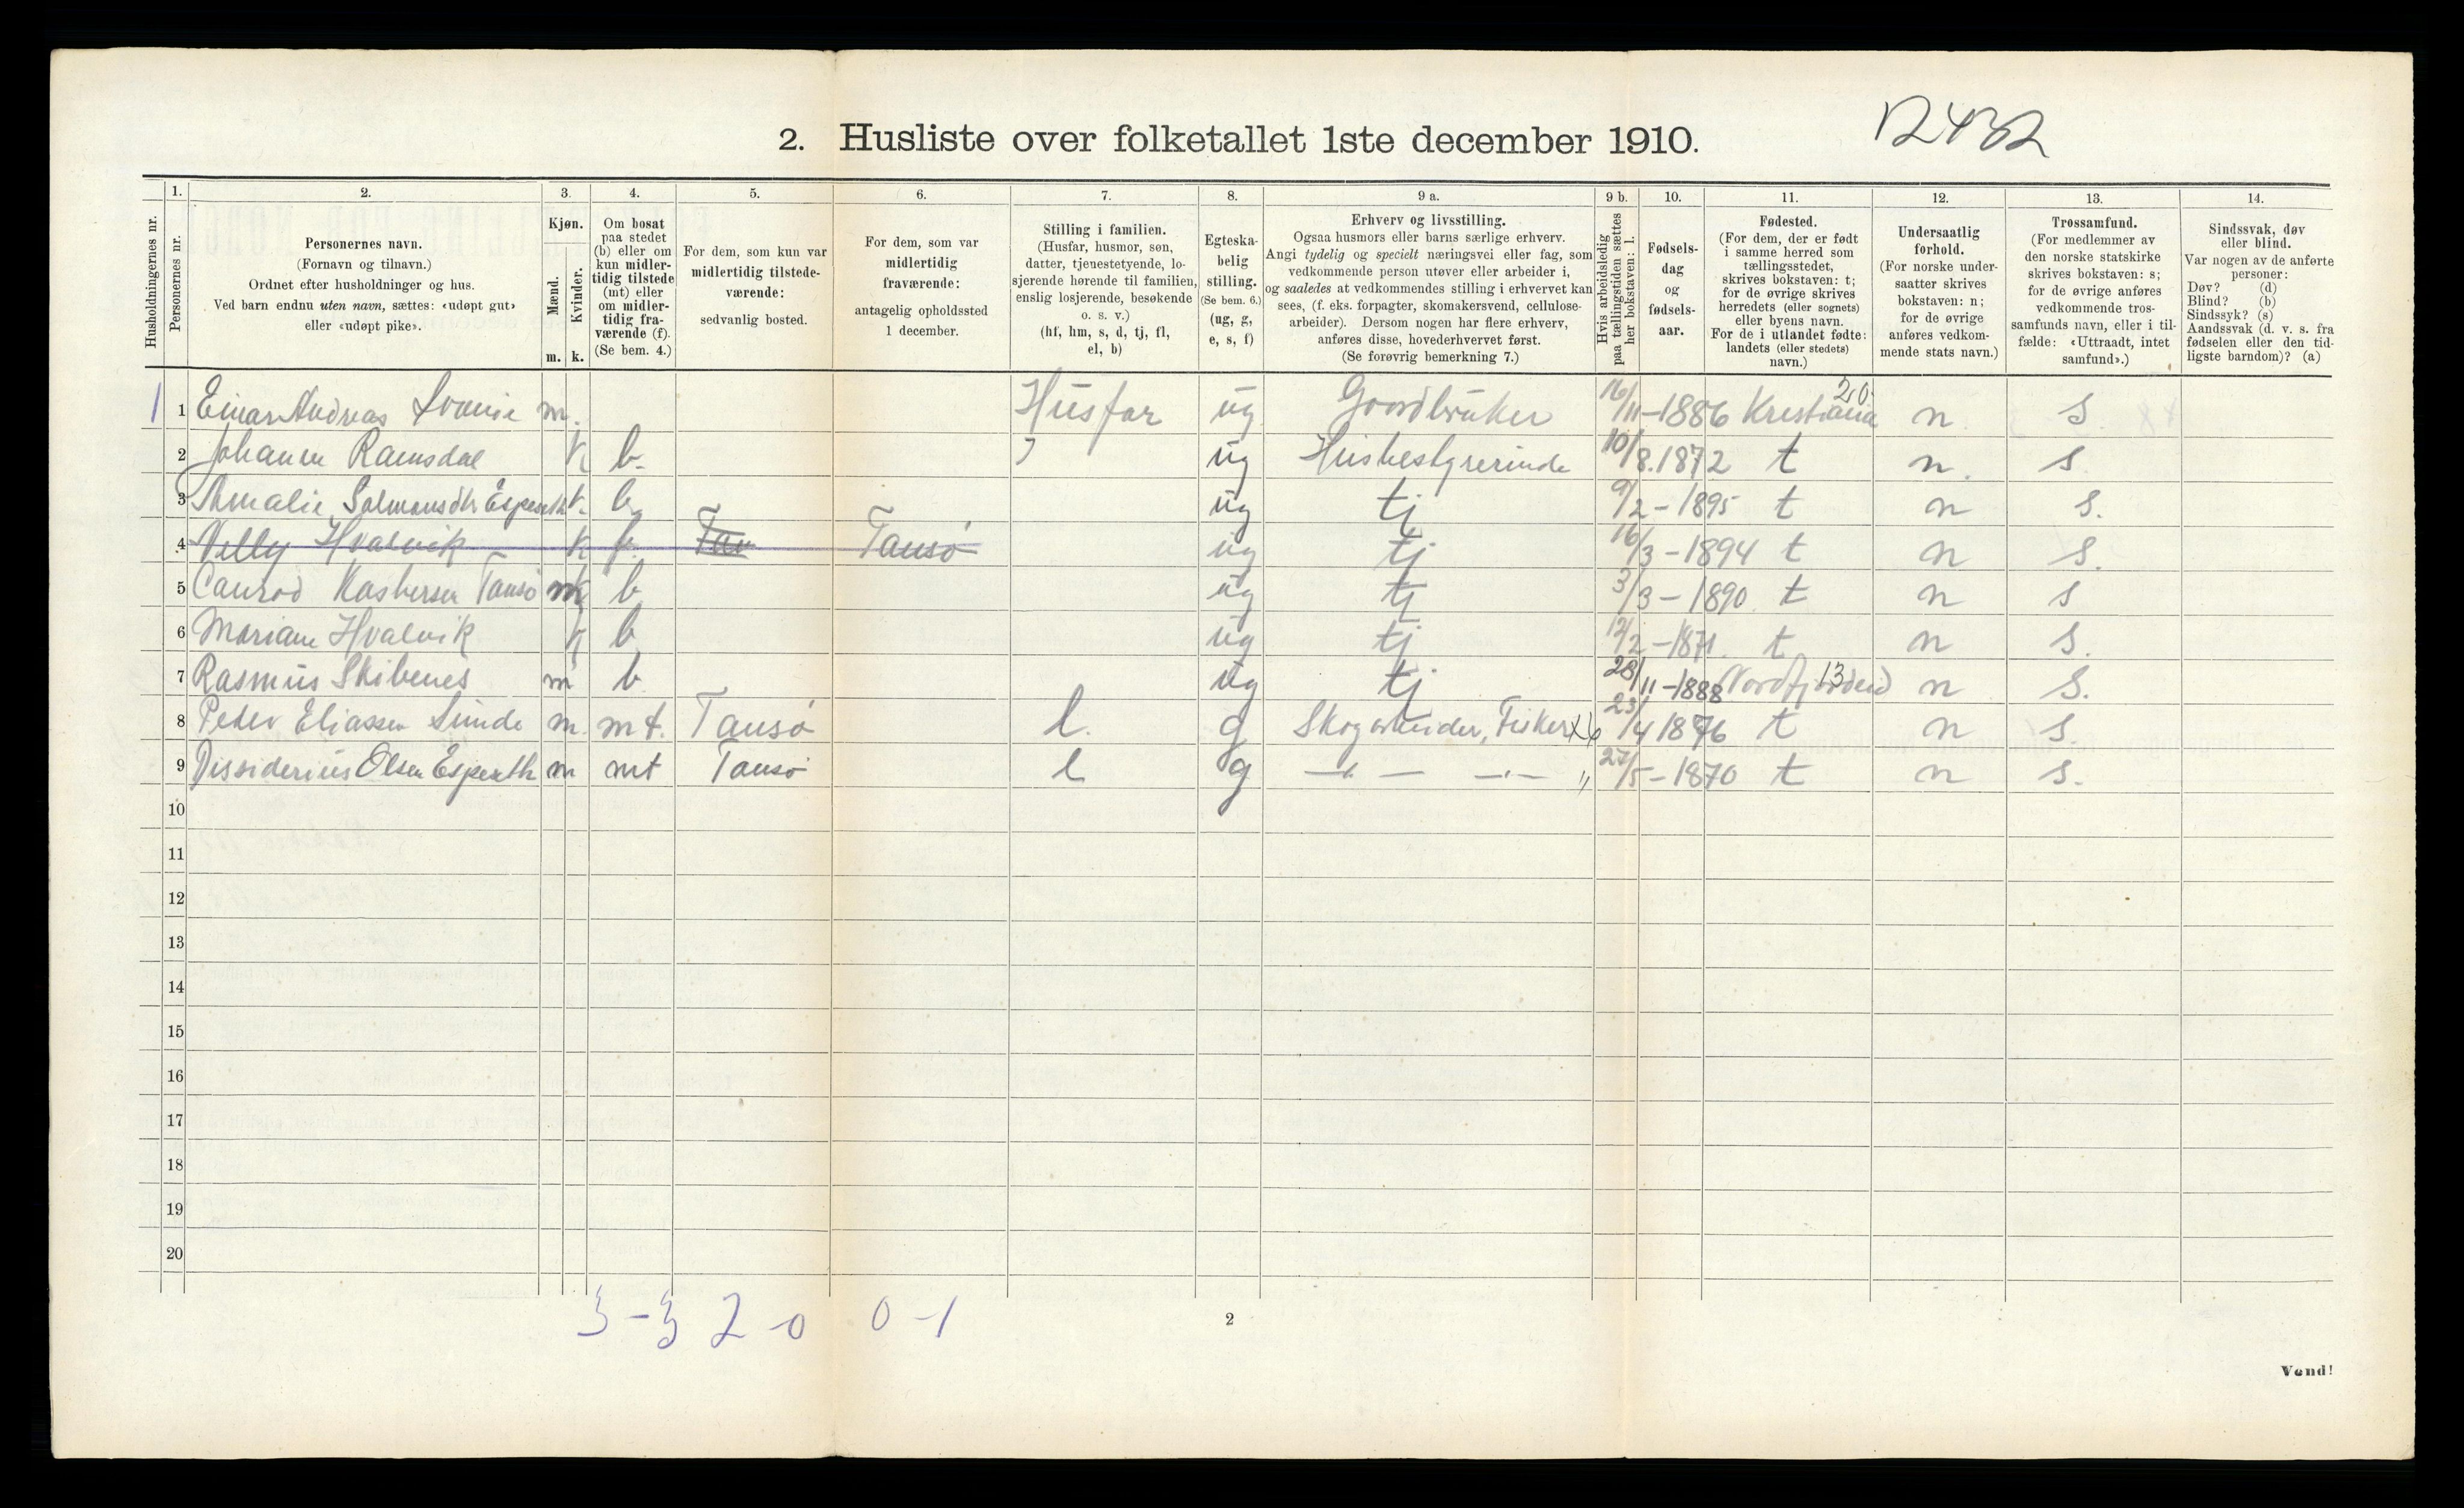 12432
2. Husliste over folketallet 1ste december 1910.
Husholdningernes nr.
1.
Personernes nr.
2.
Personernes navn.
(Fornavn og tilnavn.)
Ordnet efter husholdninger og hus.
Ved barn endnu uten navn, sættes: «udøpt gut»
eller «udøpt pike».
3.
Kjøn.
Mænd.
Kvinder.
m. k.
4.
Om bosat
paa stedet
(b) eller om
kun midler-
tidig tilstede
(mt) eller
om midler-
tidig fra-
værende (f).
(Se bem. 4.)
5.
For dem, som kun var
midlertidig tilstede-
værende:
sedvanlig bosted.
6.
For dem, som var
midlertidig
fraværende:
antagelig opholdssted
1 december.
7.
Stilling i familien.
(Husfar, husmor, søn,
datter, tjenestetyende, lo-
sjerende hørende til familien,
enslig losjerende, besøkende
o. s. v.)
(hf, hm, s, d, tj, fl,
el, b)
8.
Egteska-
belig
stilling.
(Se bem. 6.)
(ug, g,
e, s, f)
9 a.
Erhverv og livsstilling.
Ogsaa husmors eller barns særlige erhverv.
Angi tydelig og specielt næringsvei eller fag, som
vedkommende person utøver eller arbeider i,
og saaledes at vedkommendes stilling i erhvervet kan
sees, (f. eks. forpagter, skomakersvend, cellulose-
arbeider). Dersom nogen har flere erhverv,
anføres disse, hovederhvervet først.
(Se forøvrig bemerkning 7.)
9 b.
Hvis arbeidsledig
paa tællingstiden sættes
her bokstaven: l.
10.
Fødsels-
dag
og
fødsels-
aar.
11.
Fødested.
(For dem, der er født
i samme herred som
tællingsstedet,
skrives bokstaven: t;
for de øvrige skrives
herredets (eller sognets)
eller byens navn.
For de i utlandet fødte:
landets (eller stedets)
navn.)
12.
Undersaatlig
forhold.
(For norske under-
saatter skrives
bokstaven: n;
for de øvrige
anføres vedkom-
mende stats navn.)
13.
Trossamfund.
(For medlemmer av
den norske statskirke
skrives bokstaven: s;
for de øvrige anføres
vedkommende tros-
samfunds navn, eller i til-
fælde: «Uttraadt, intet
samfund».)
14.
Sindssvak, døv
eller blind.
Var nogen av de anførte
personer:
Døv? (d)
Blind? (b)
Sindssyk? (s)
Aandssvak (d. v. s. fra
fødselen eller den tid-
ligste barndom)? (a)
1 1 Einar Andreas m. Husfar ug Goardbruker 16/11-1886 Kristiania 20. n. s.
2 Johanne Ramsdal k b. ug Husbestyrerinde 10/8.1872 t n. s.
3 Amalie Salmonsdtr Espeseth k. b ug tj 9/2-1895 t n s.
4 Nelly Hvalvik k f. Tau Tansø ug tj 16/3-1894 t n s.
5 Canrod Kasbersen Tansø mk b ug tj 3/3-1890 t n s
6 Mariane Hvalvik k b ug tj 12/2-1871. t n s.
7 Rasmus Skibenes m b ug tj 28/11-1888 Nordfjordeid 13 n s.
8 Peder Eliassen Sunde m. mt. Tansø l. g Skogarbeider, Fisker 23/4 1876 t n s.
9 Dissiderius Olsen Espeseth m mt Tansø l g —"— —"— " 27/5-1870 t n s.
10
11
12
13
14
15
16
17
18
19
20
3-3 2-0 0-1
2
Vend!